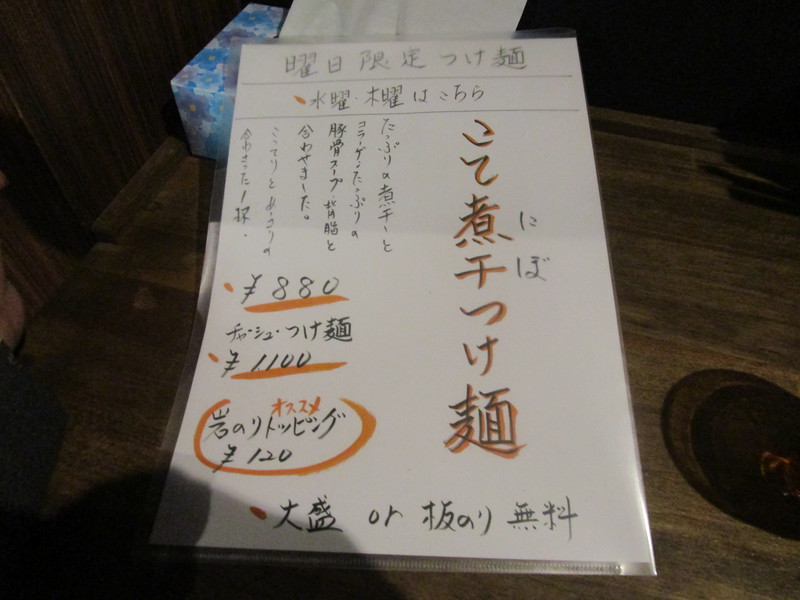 曜日限定つけ麺
水曜・木曜はこちら
こて煮干つけ麺
にぼ
たっぷりの煮干しと
コラーゲンたっぷりの
豚骨スープ、背脂と
合わせました。
こってりとあっさりの
合わさった1杯。
¥880
チャーシューつけ麺
¥1,100
オススメ
岩のりトッピング
¥120
大盛 or 板のり 無料